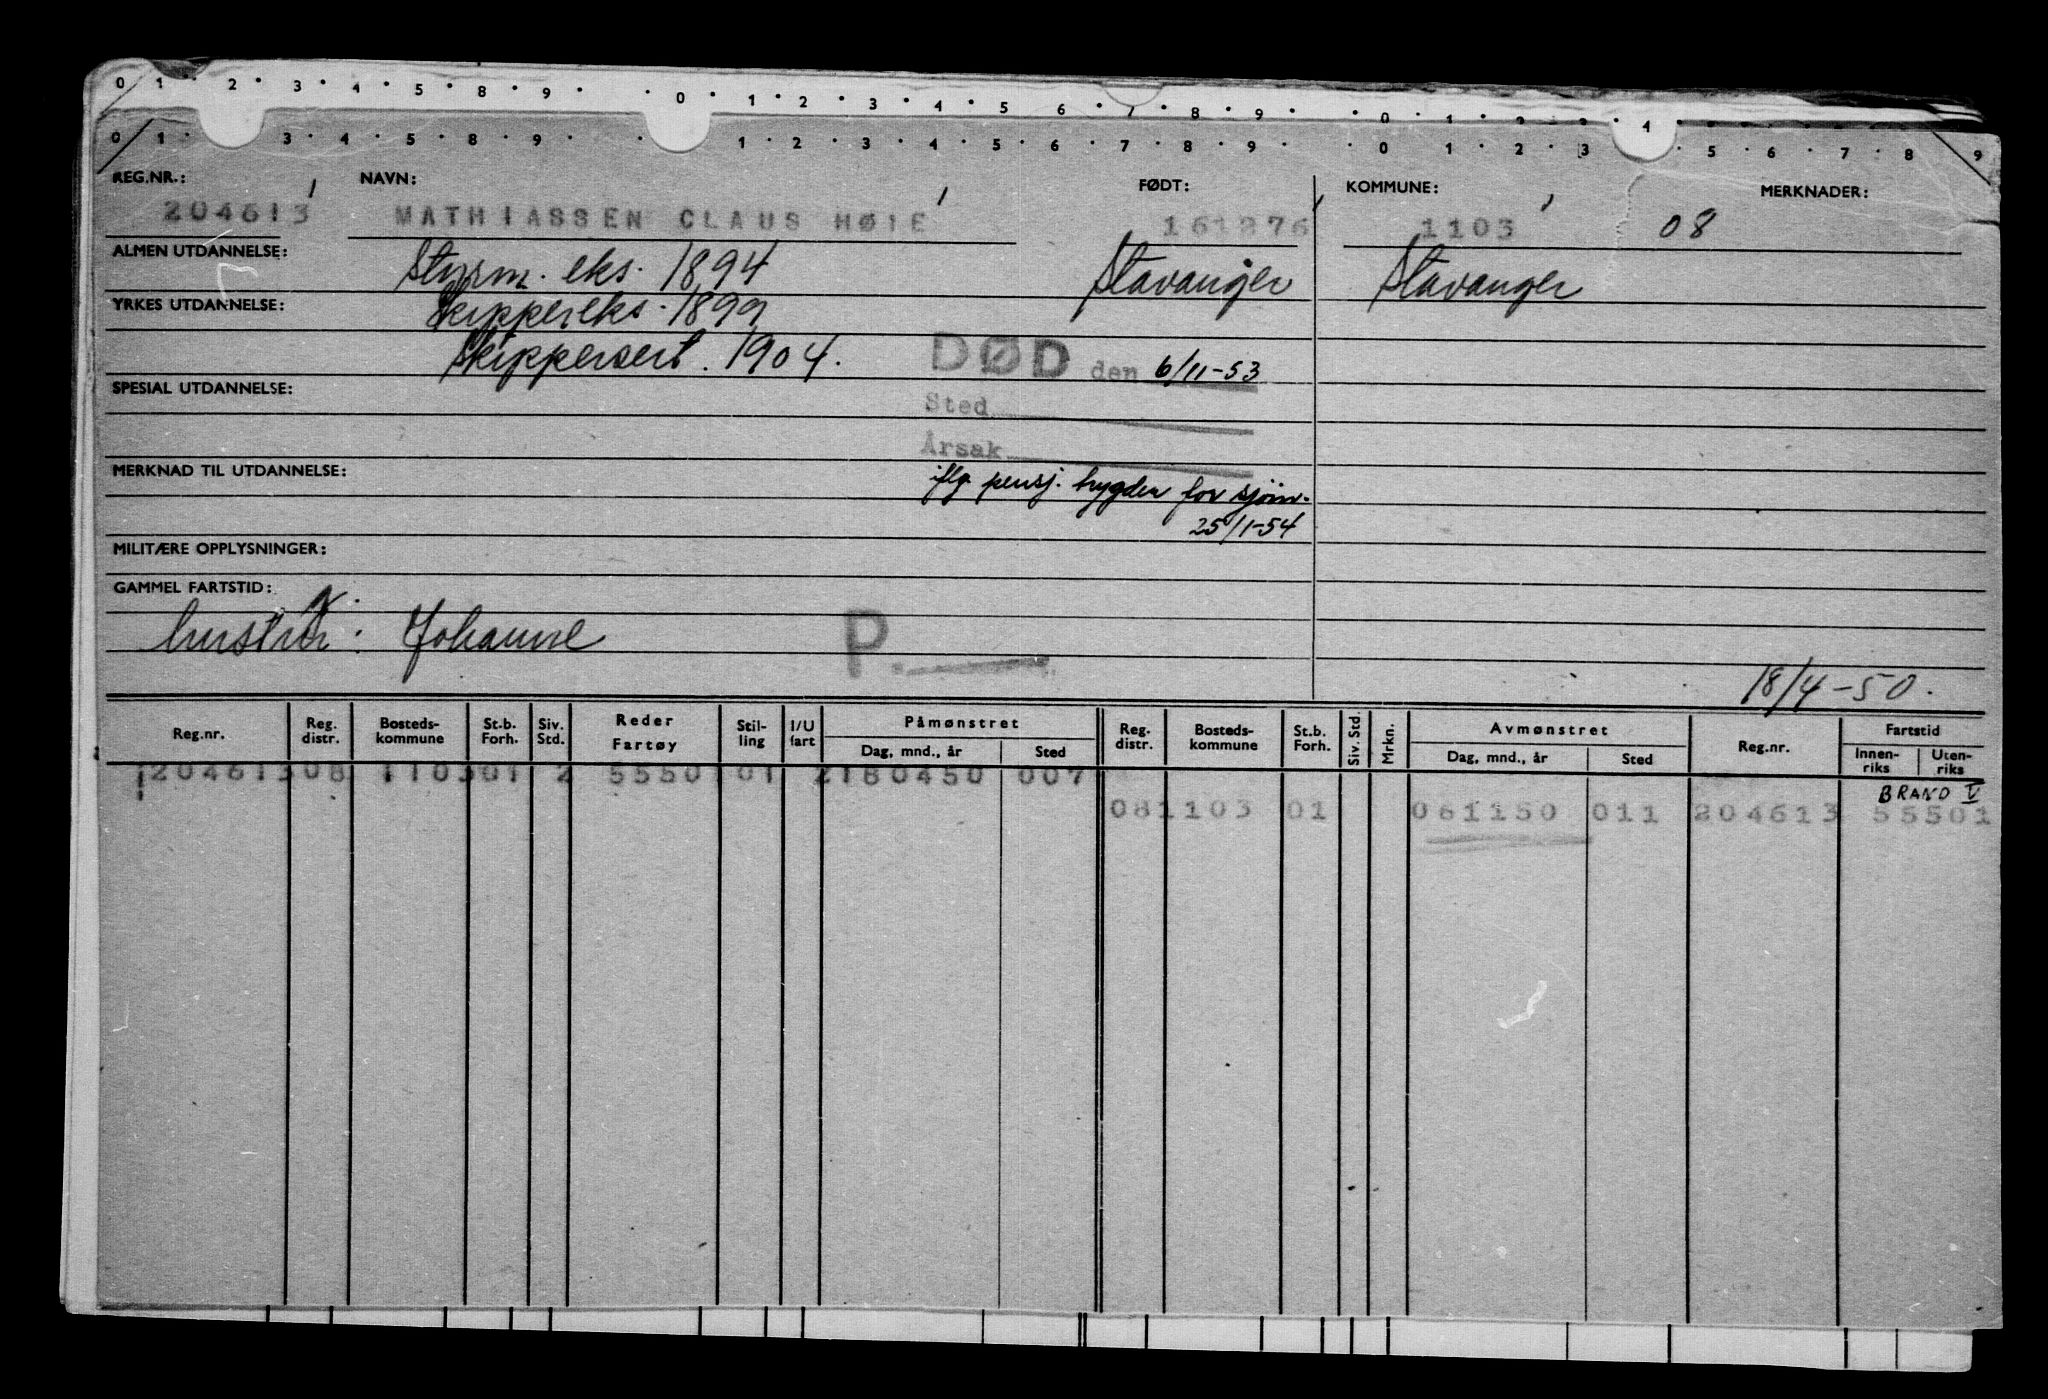 0 1 · 2 · 3 · 4 · 5 · 8 · 9 · · 0 · 1 · 2 · 3 · 4 · 5 6 · 7 · 8 · 9 · · 0 · 1 · 2 · 3 · 4
0 1 · 3 · 4 · 5 · 8 · 9 · · 1 · 2 · 3 · 4 · 5 · 6 · 7 · 8 · 9 · · 0 · 1 · 2 · 3 · 5 · 6 · 7 · 8 · 9
REG.NR.: NAVN: FØDT: KOMMUNE: MERKNADER:
204613 MATHIASSEN CLAUS HØIE 161276 1103 08
ALMEN UTDANNELSE: Styrm. eks. 1894 Stavanger Stavanger
YRKES UTDANNELSE: Skippereks. 1899
Skippersert. 1904.
DØD den 6/11-53
SPESIAL UTDANNELSE: Sted
Årsak
MERKNAD TIL UTDANNELSE: iflg. pensj. trygden for sjøm.
25/1-54
MILITÆRE OPPLYSNINGER:
GAMMEL FARTSTID:
hustru: Johanne P.
18/4-50.
Reg.nr. Reg. distr. Bosteds-kommune St.b. Forh. Siv. Std. Reder Fartøy Stil-ling I/U fart Påmønstret Dag, mnd., år Sted Reg. distr. Bosteds-kommune St.b. Forh. Siv. Std. Mrkn. Avmønstret Dag, mnd., år Sted Reg.nr. Fartstid Innen-riks Uten-riks
204613 08 1103 01 2 5550 01 2 180450 007
BRAND V
08 1103 01 061150 011 204613 55501